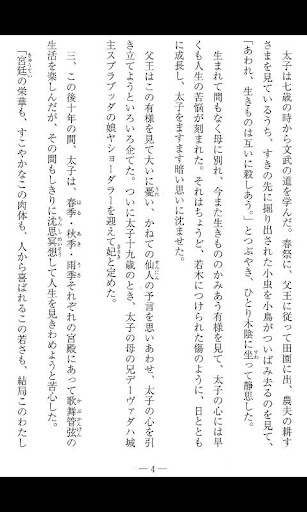 太子は七歳の時から文武の道を学んだ。春祭に、父王に従って田園に出、農夫の耕す
さまを見ているうち、すきの先に掘り出された小虫を小鳥がついばみ去るのを見て、
「あわれ、生きものは互いに殺しあう。」とつぶやき、ひとり木陰に坐って静思した。
生まれて間もなく母に別れ、今また生きもののかみあう有様を見て、太子の心には早
くも人生の苦悩が刻まれた。それはちょうど、若木につけられた傷のように、日ととも
に成長し、太子をますます暗い思いに沈ませた。
父王はこの有様を見て大いに憂い、かねての仙人の予言を思いあわせ、太子の心を引
き立てようといろいろ企てた。ついに太子十九歳のとき、太子の母の兄デーヴァダハ城
主スプラブッダの娘ヤショーダラーを迎えて妃と定めた。
三、この後十年の間、太子は、春季・秋季・雨季それぞれの宮殿にあって歌舞管弦の
生活を楽しんだが、その間もしきりに沈思冥想して人生を見きわめようと苦心した。
「宮廷の栄華も、すこやかなこの肉体も、人から喜ばれるこの若さも、結局このわたし
— 4 —